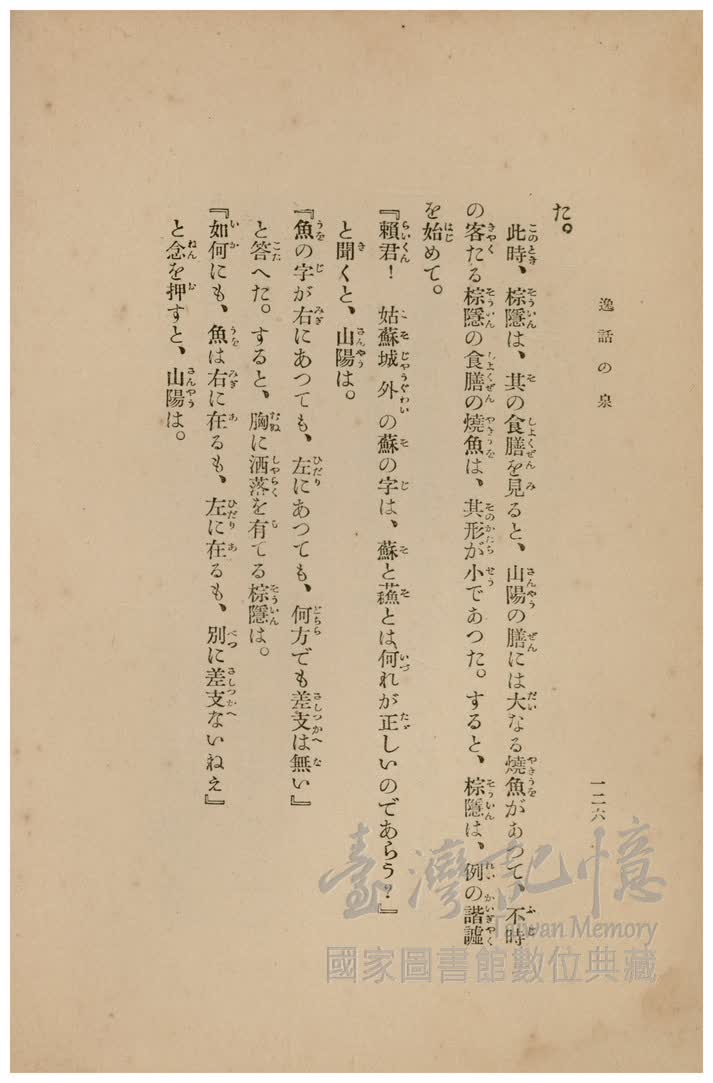 逸話の泉
一二六
た。
此時、棕隱は、其の食膳を見ると、山陽の膳には大なる燒魚があつて、不時
の客たる棕隱の食膳の燒魚は、其形が小であつた。すると、棕隱は、例の諧謔
を始めて。
『賴君！　姑蘇城外の蘇の字は、蘇と蘓とは何れが正しいのであらう？』
と聞くと、山陽は。
『魚の字が右にあつても、左にあつても、何方でも差支は無い』
と答へた。すると、胸に洒落を有てる棕隱は。
『如何にも、魚は右に在るも、左に在るも、別に差支ないねえ』
と念を押すと、山陽は。
臺灣記憶
Taiwan Memory
國家圖書館數位典藏